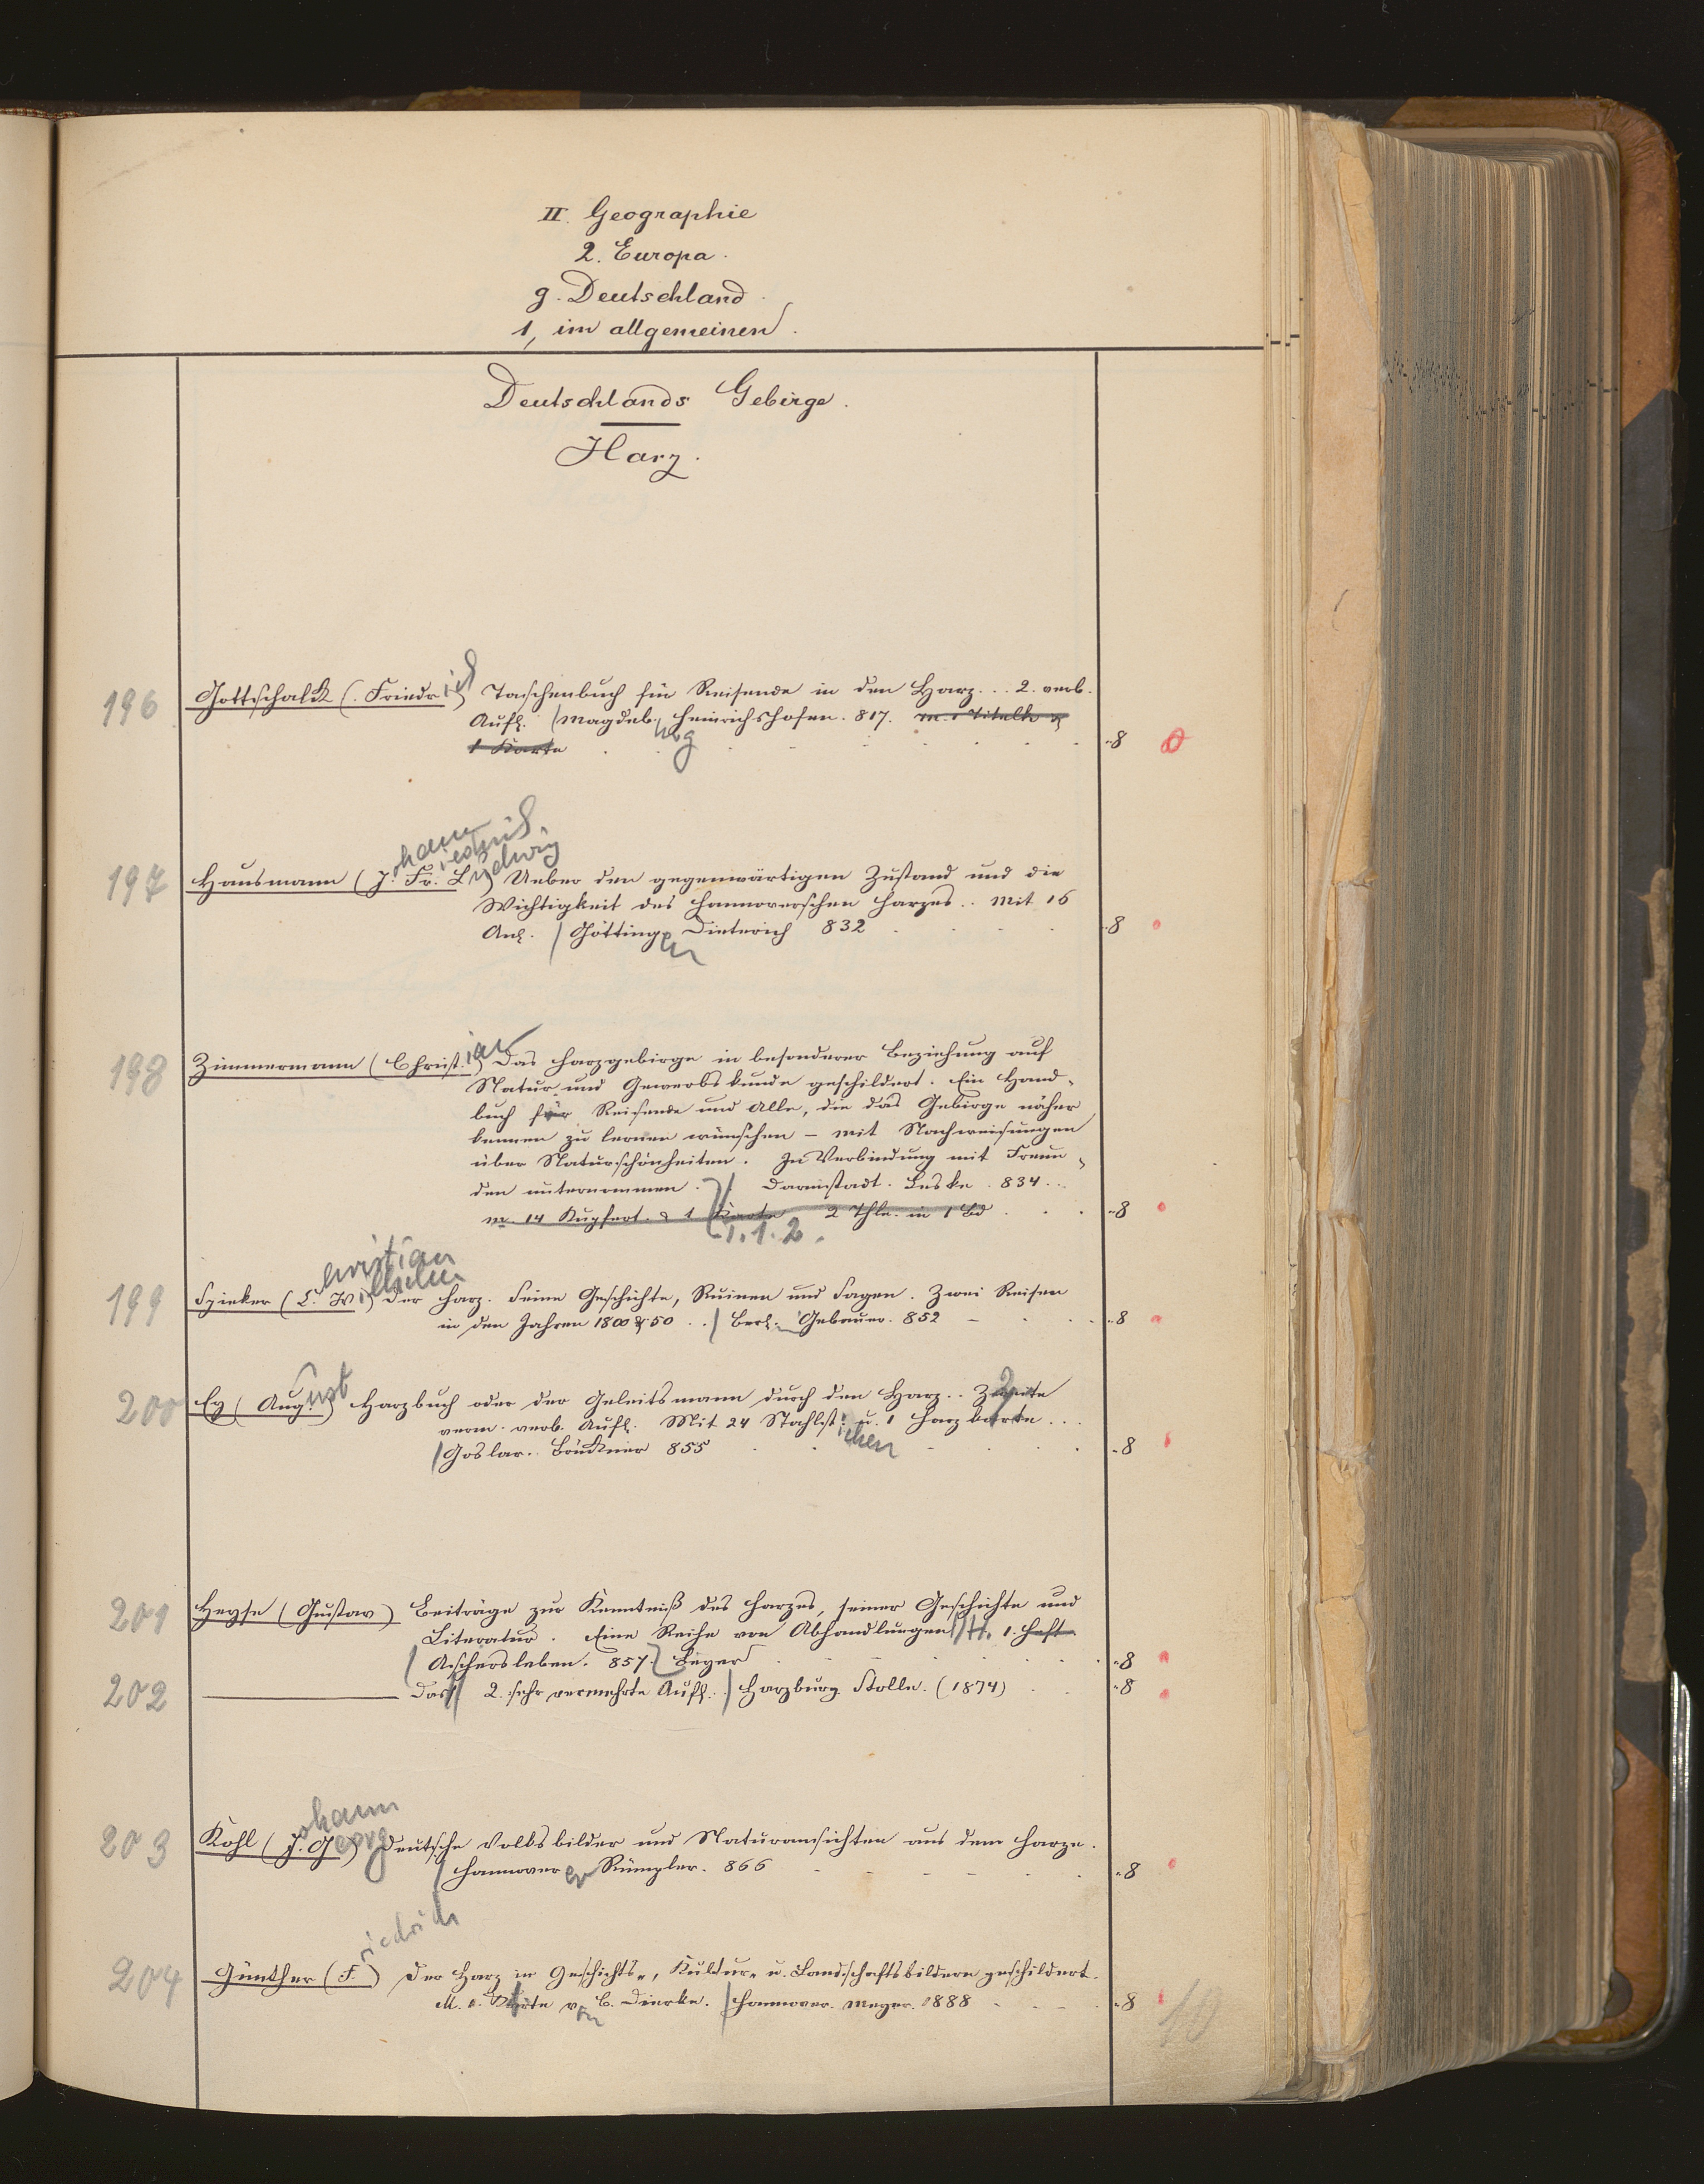 II. Geographie
2. Europa.
g. Deutschland.
1, im allgemeinen.
Deutschlands Gebirge.
Harz.
196 Gottschalk (Friedrich) Taschenbuch für Reisende in den Harz... 2. verb.
Aufl. (Magdeburg Heinrichshofen. 817. m. 1 Titelk. &
1 Karte -8
197 Hausmann (Johann Friedrich Ludwig) Ueber den gegenwärtigen Zustand und die
Wichtigkeit des hannoverschen Harzes.. Mit 16
Anl. / Göttingen Dieterich 832 -8
198 Zimmermann (Christian) Das Harzgebirge in besonderer Beziehung auf
Natur und Gewerbskunde geschildert. Ein Hand-
buch für Reisende und Alle, die das Gebirge näher
kennen zu lernen wünschen – mit Nachweisungen
über Naturschönheiten. In Verbindung mit Freun-
den unternommen. Darmstadt. Leske. 834..
m. 14 Kupfert. & 1 Karte 2 Thle. in 1 Bd -8
T. 1. 2.
199 Spieker (Christian Wilhelm) Der Harz. Seine Geschichte, Ruinen und Sagen. Zwei Reisen
in den Jahren 1800 & 50 .. / Berl. Gebauer. 852 -8
200 Ey (August) Harzbuch oder der Geleitsmann durch den Harz.. Zweite 2.
verm. verb. Aufl. Mit 24 Stahlstichen u. 1 Harzkarte...
/ Goslar. Brückner 855 -8
201 Heyse (Gustav) Beiträge zur Kenntniß des Harzes, seiner Geschichte und
Literatur. Eine Reihe von Abhandlungen H. 1. Heft.
/ Aschersleben. 857. Beyer -8
202 Das // 2. sehr vermehrte Aufl. / Harzburg. Stolle. (1874) -8
203 Kohl (Johann Georg) Deutsche Volksbilder und Naturansichten aus dem Harze.
/ Hannover Rümpler. 866 -8
204 Günther (Friedrich) Der Harz in Geschichts-, Kultur- u. Landschaftsbildern geschildert.
M. e. Karte von C. Diercke. / Hannover. Meyer. 1888 -8
10